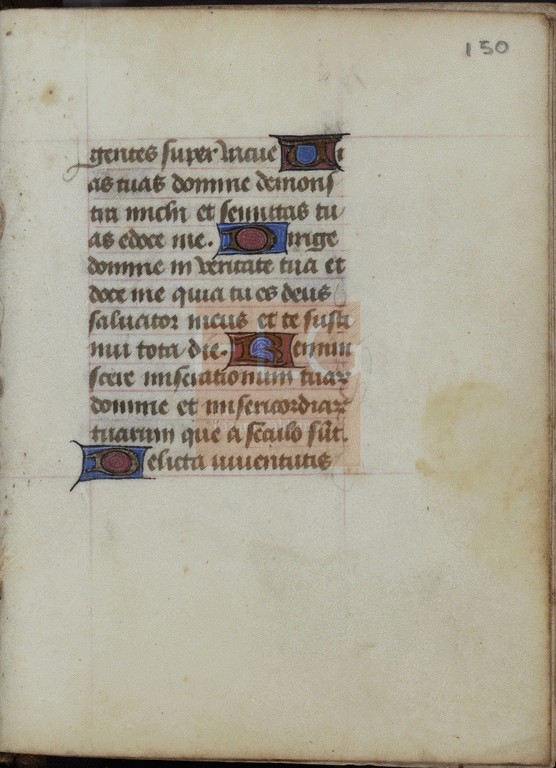 150
gentes super vacue Vi
as tuas domine demons
tra michi et semitas tu
as edoce me. Dirige
domine in veritate tua et
doce me quia tu es deus
salvator meus et te susti
nui tota die. Remini
scere miserationum tuaꝝ
domine et misericordiaꝝ
tuarum que a seculo sūt.
Delicta iuventutis